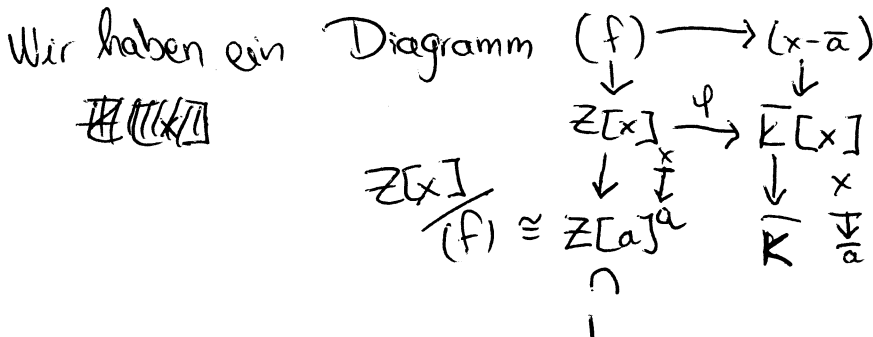 Wir haben ein Diagramm (f) → (x-ā)
↓ ↓
Z[x] φ→ K̄[x]
Z[x]/(f) ≅ Z[a] x ↦ a ↓ ↓ x ↦ ā
K̄
∩